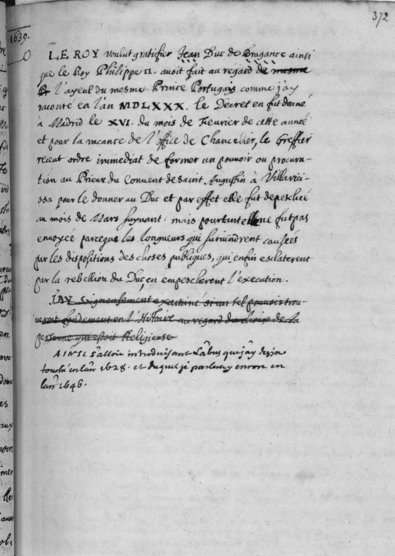 372
1639.
LE ROY voulut gratifier Jean Duc de Bragance ainsi
que le Roy Philippe II. avoit fait au regard de mesme
l'ayeul du mesme Prince Portugais comme j'ay
raconté en l'an MDLXXX. Le Décret en fut donné
à Madrid le XVI. du mois de Feurier de cette année
et pour la vacance de l'office de Chancelier, le Greffier
receut ordre immediat de former un pouvoir ou procura-
tion au Prieur du Convent de Saint Augustin à Villavici-
osa pour le donner au Duc et par effet elle fut depeschée
au mois de Mars suyvant: mais pourtant elle ne fut pas
envoyée parceque les longueurs qui survindrent causées
par les dispositions des choses publiques, qui enfin esclaterent
par la rebellion du Duc en empescherent l'execution.
J'AY Soigneusement examiné si un tel pouvoir trou-
en l'Histoire au regard du de la
personne qui estoit Religieuse
AINSI s'alloit introduisant l'abus que j'ay desja
touché en l'an 1628. et duquel je parleray encore en
l'an 1646.